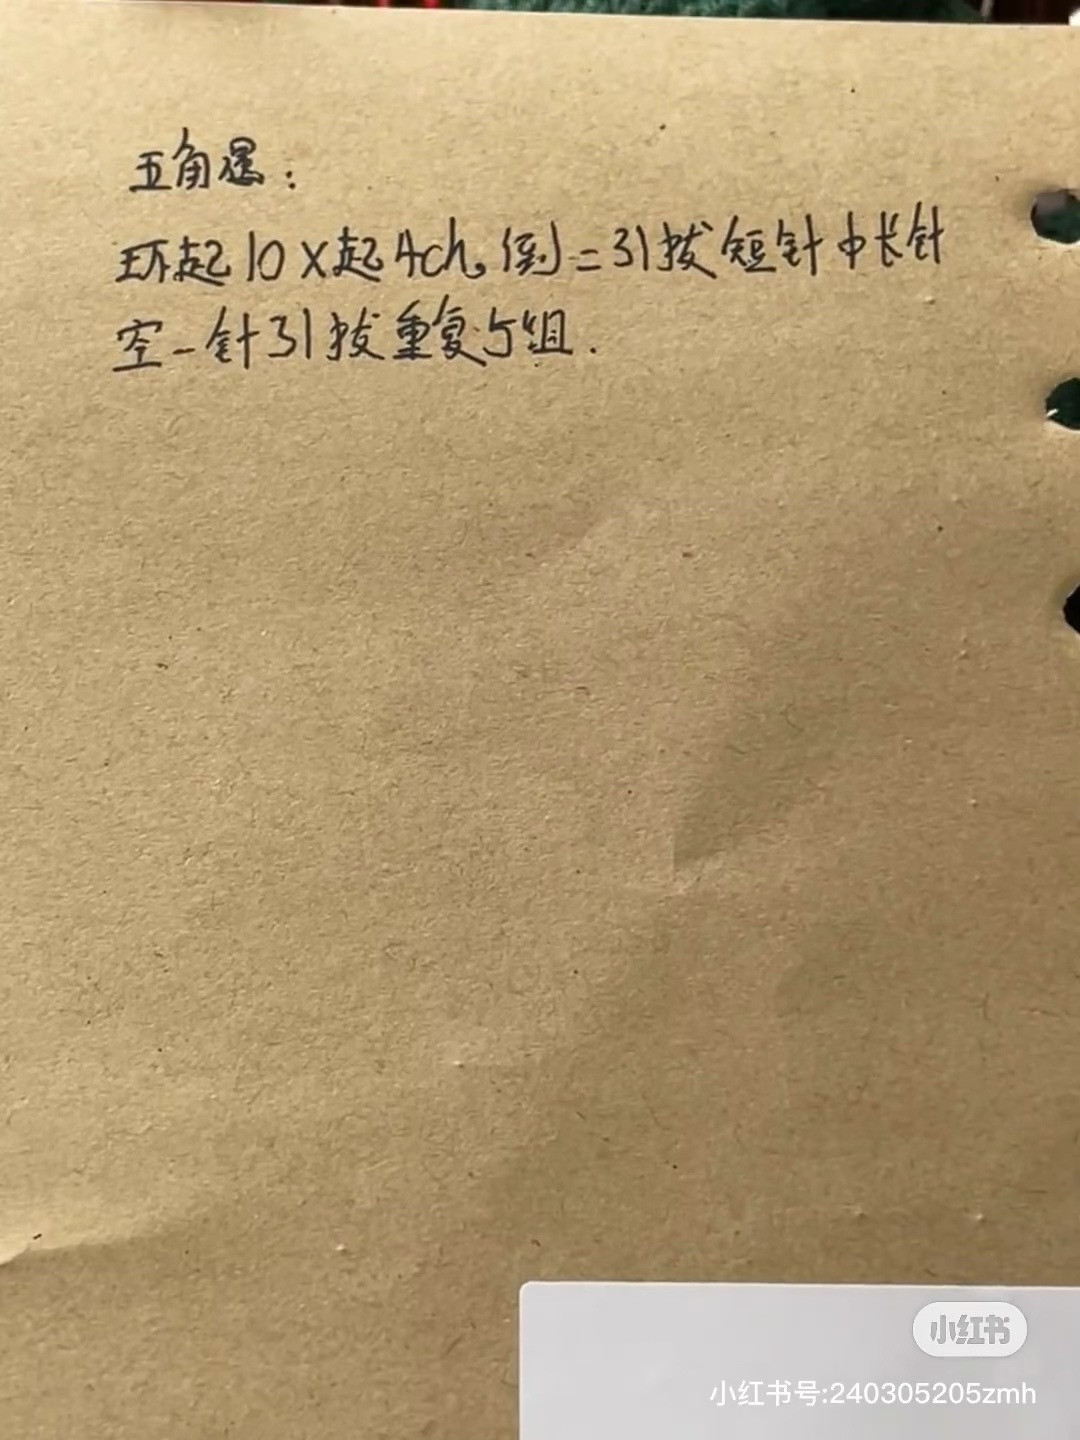 五角星：
环起10X起4ch，倒二引拔短针中长针
空一针引拔重复5组.
小红书
小红书号:240305205zmh